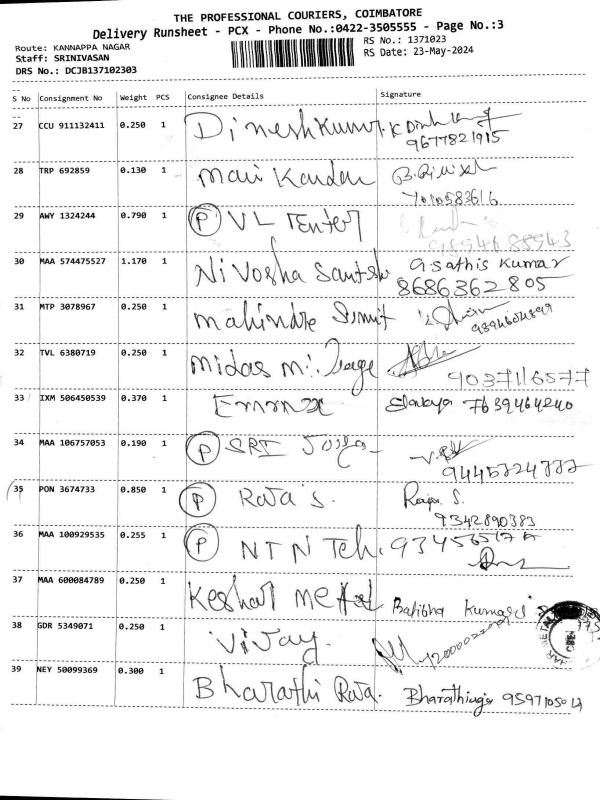 THE PROFESSIONAL COURIERS, COIMBATORE
Delivery Runsheet - PCX - Phone No.:0422-3505555 - Page No.:3
Route: KANNAPPA NAGAR
RS No.: 1371023
Staff: SRINIVASAN
RS Date: 23-May-2024
DRS No.: DCJB137102303
S No Consignment No Weight PCS Consignee Details Signature
27 CCU 911132411 0.250 1 Dineshkumar. K Dinesh
9677821915
28 TRP 692859 0.130 1 Mari Kandan
29 AWY 1324244 0.790 1 P VL Center
30 MAA 574475527 1.170 1 Nivosha Santosh G Sathis Kumar
8686362805
31 MTP 3078967 0.250 1 Mahindre Summit
32 TVL 6380719 0.250 1 Midas
9037116577
33 IXM 506450539 0.370 1 Emmx 7639464240
34 MAA 106757053 0.190 1 P SRI
9445724777
35 PON 3674733 0.850 1 P Raja's. Raja S.
9342890383
36 MAA 100929535 0.255 1 P NTN Tch.
37 MAA 600084789 0.250 1 Keshar Metal Kumari
38 GDR 5349071 0.250 1 Vijay
39 NEY 50099369 0.300 1 Bharathi Raja.